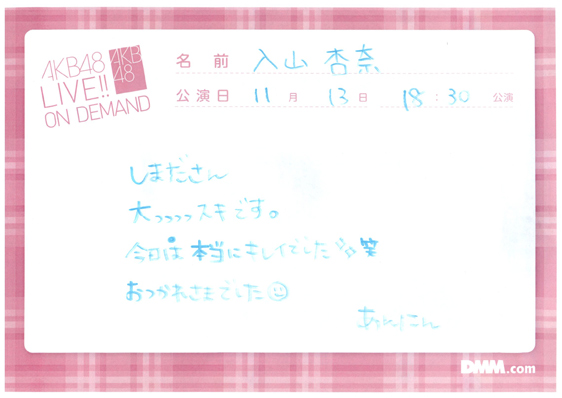 AKB48
LIVE!!
ON DEMAND
AKB
48
名前 入山 杏奈
公演日 11月 13日 18:30 公演
しまださん
大っっっっスキです。
今日は本当にキレイでした 笑
おつかれさまでした☺
あんにん
DMM.com